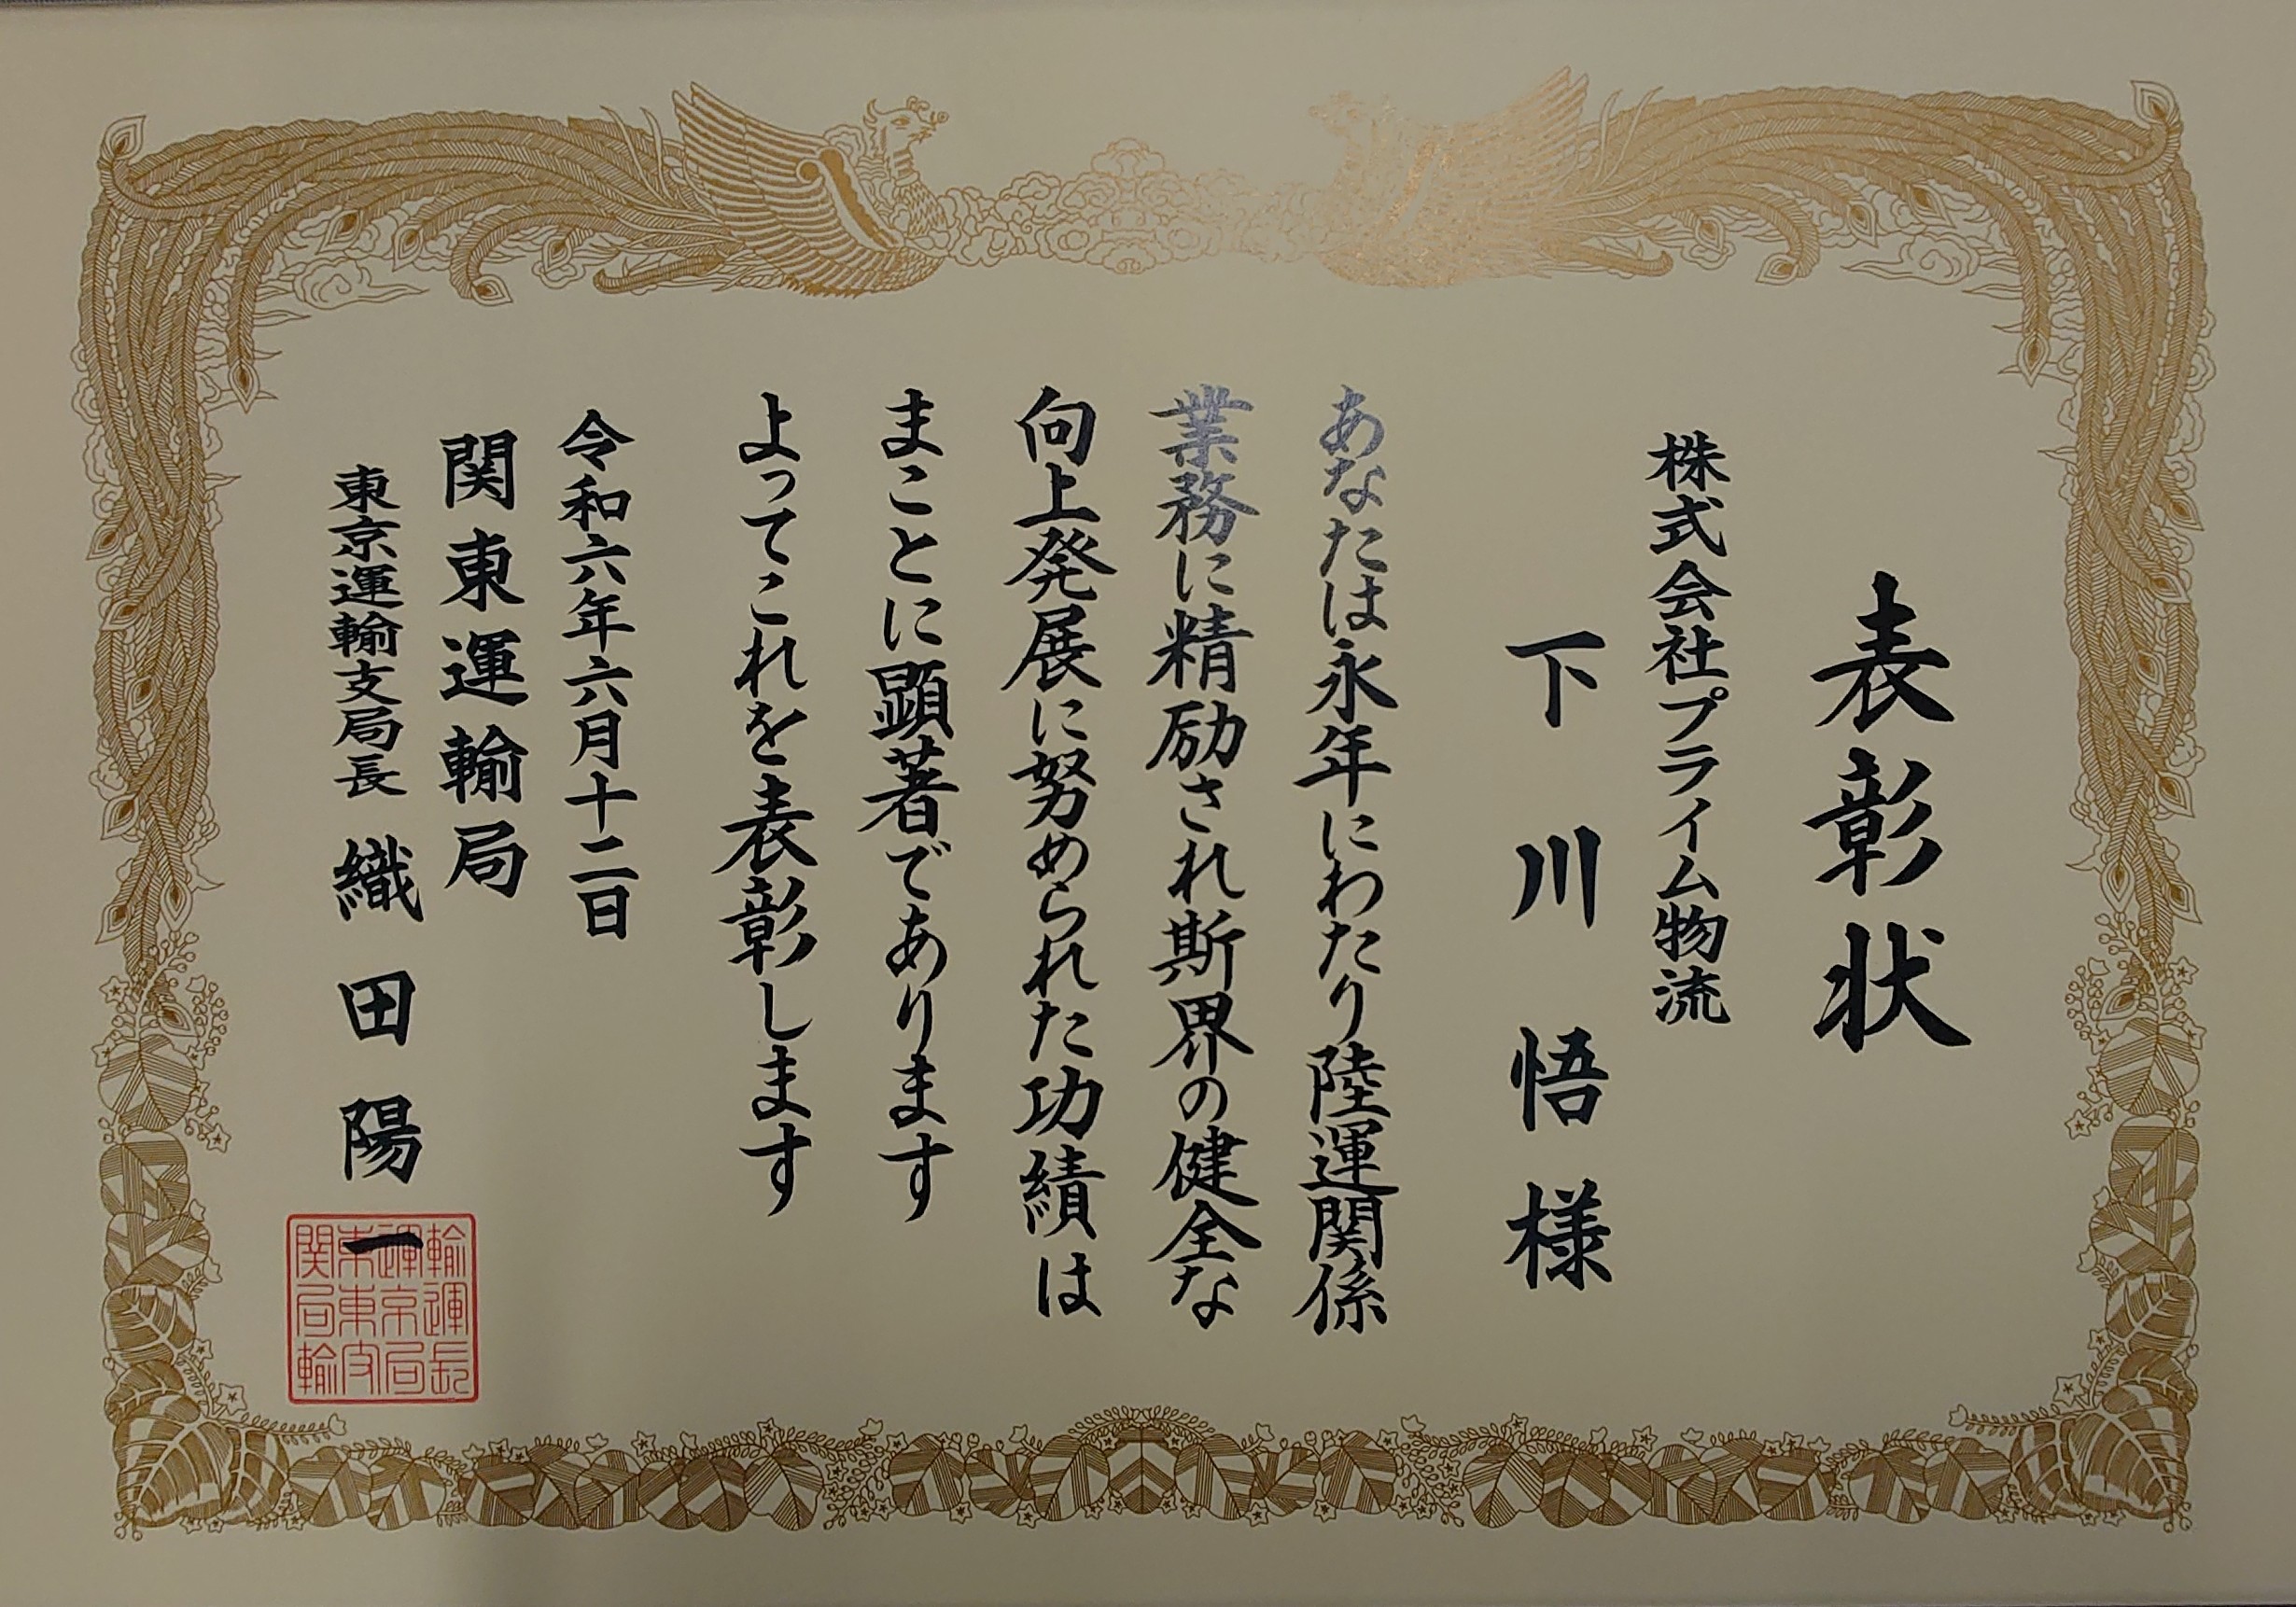 表彰状
株式会社プライム物流
下川悟様
あなたは永年にわたり陸運関係
業務に精励され斯界の健全な
向上発展に努められた功績は
まことに顕著であります
よってこれを表彰します
令和六年六月十二日
関東運輸局
東京運輸支局長 織田陽一
関東運輸
局東京運
輸支局長